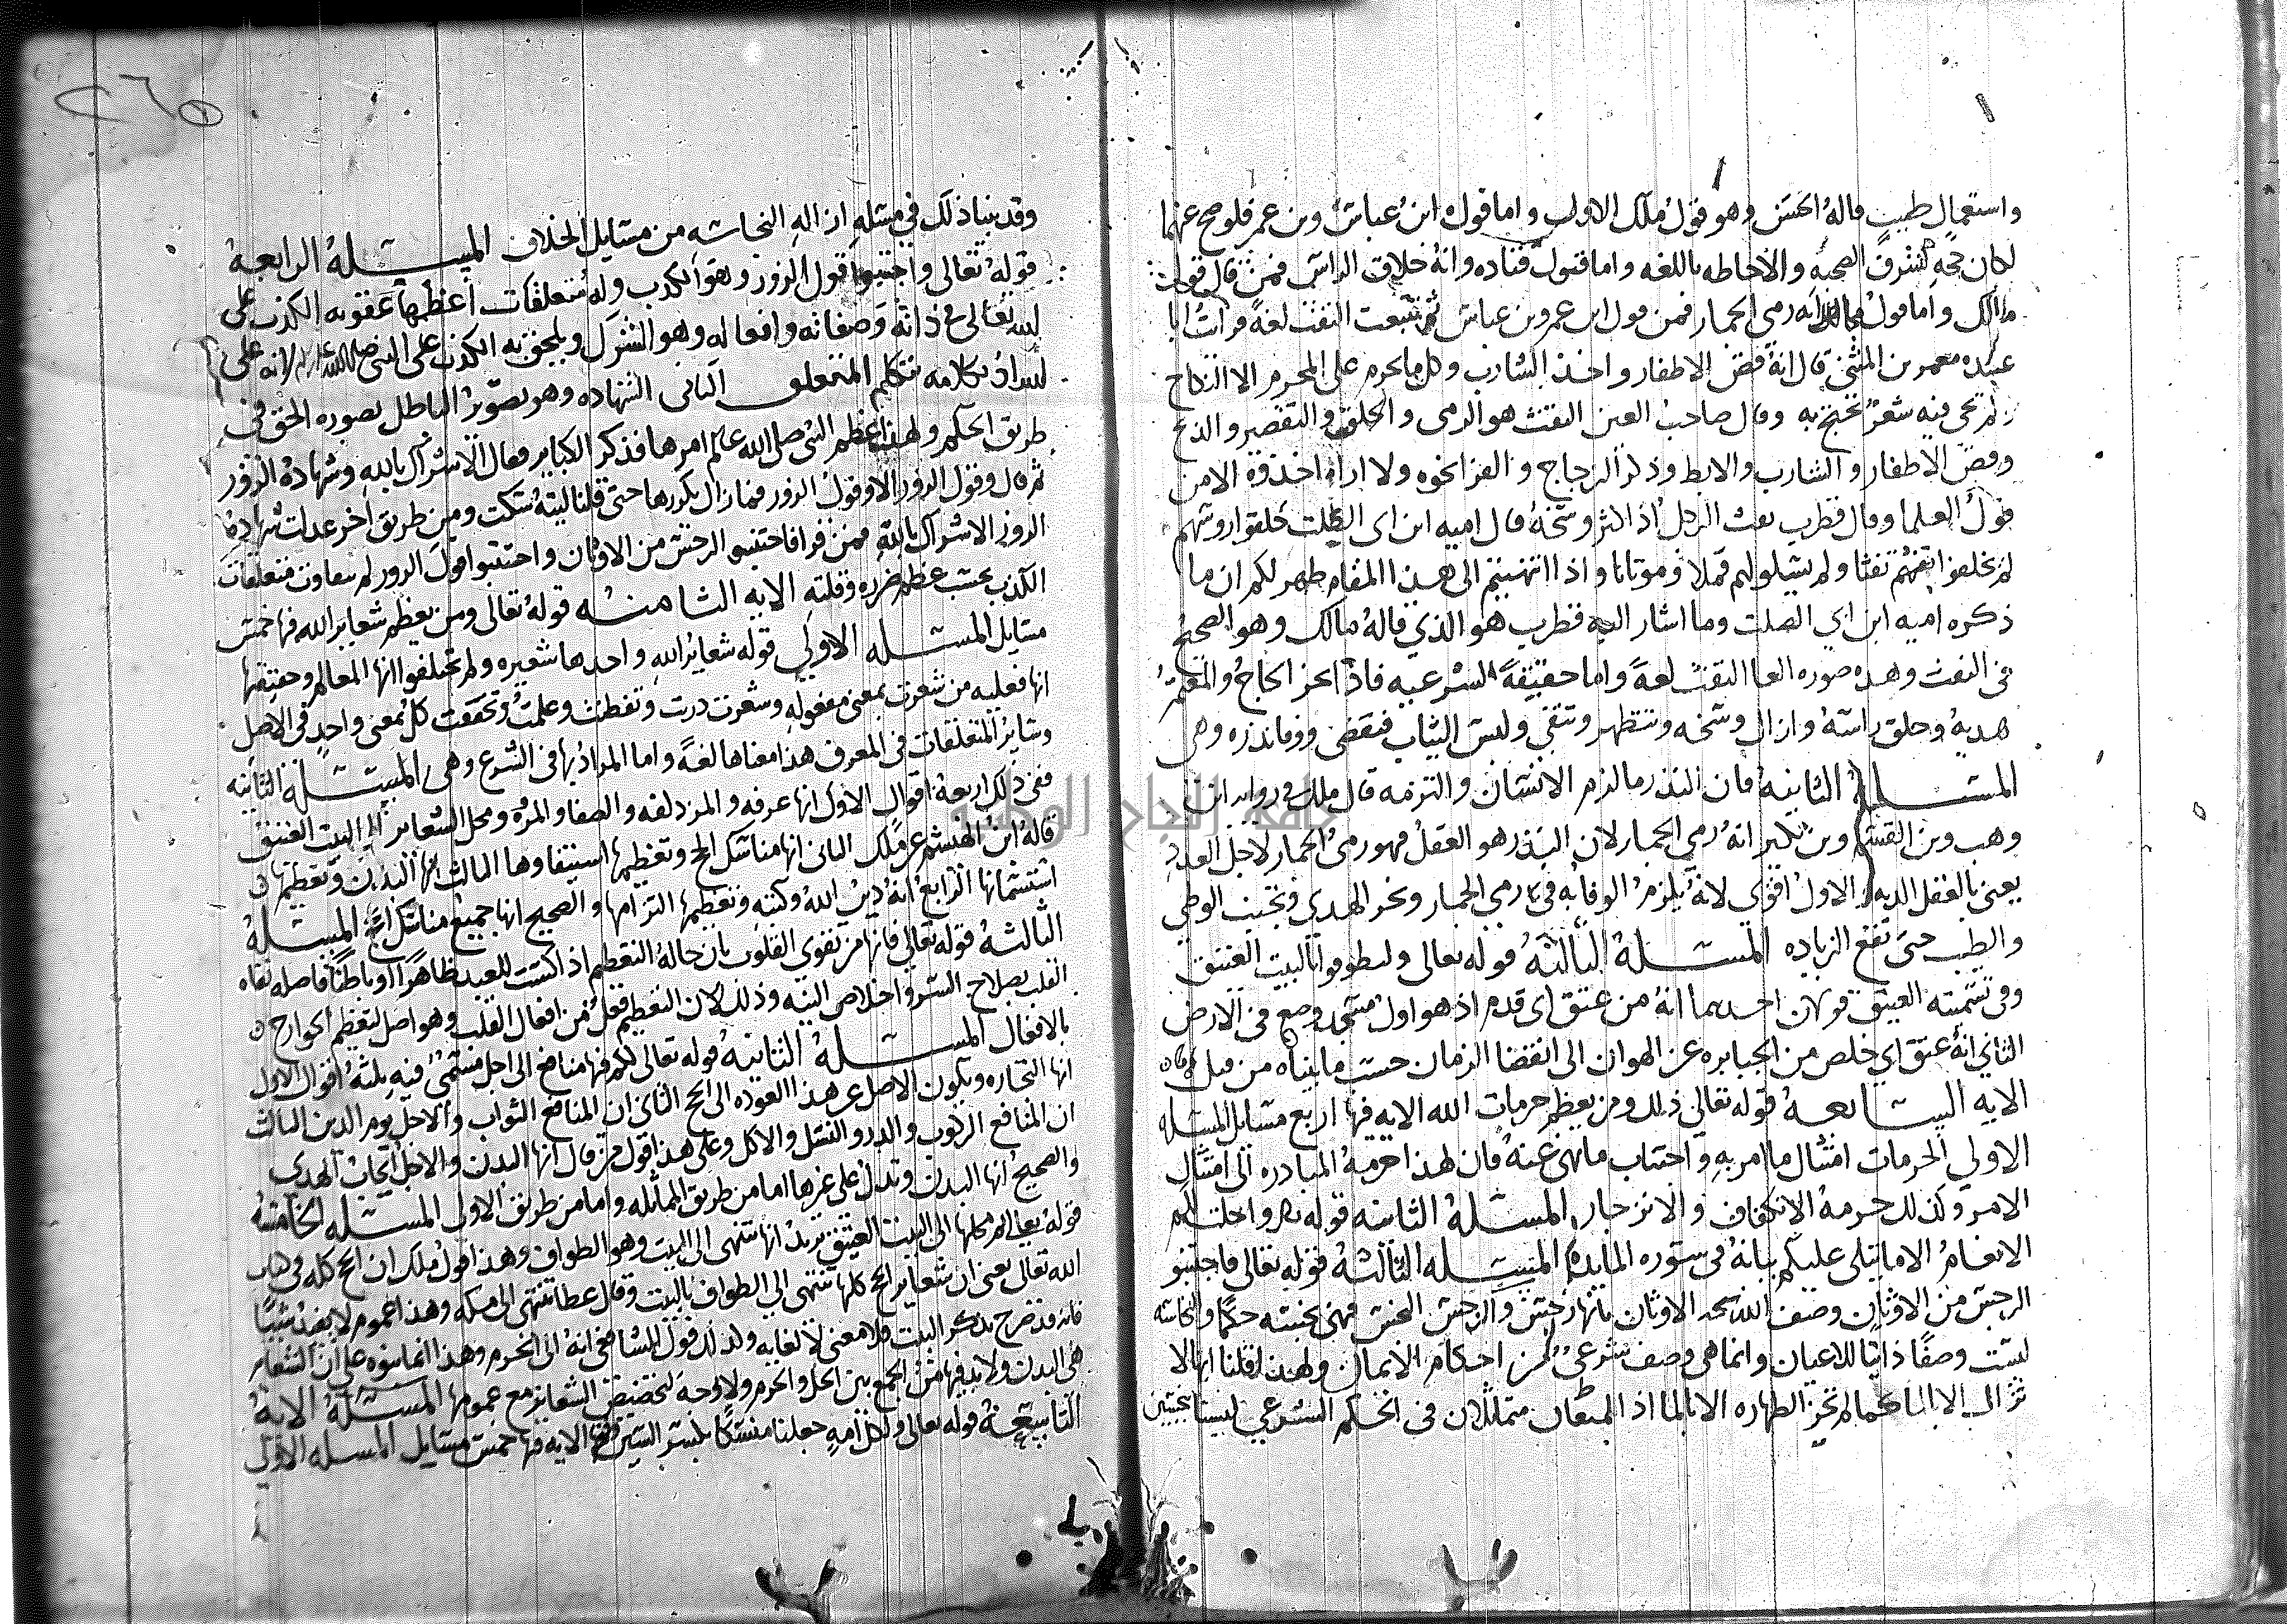 واستعمال طيب قاله الحسن وهو قول ملك الاول واما قول ابن عباس وبن عمر فلو صح عنهما
لكان حجه لشرف الصحبه والاحاطه باللغه واما قول قتاده وانه حلاق الراس فمن قال قول
مالك واما قول انه رمي الجمار فمن قول ابن عمر وبن عباس ثم تتبعت التفث لغة فرات ابا
عبيده معمر بن المثنى قال انه قص الاظفار واخذ الشارب وكل ما يحرم على المحرم الا النكاح
ولم يجى فيه شعر يحتج به وقال صاحب العين التفث هو الرمى والحلق والتقصير والذبح
وقص الاظفار والشارب والابط وذكر الزجاج والفرا نحوه ولا اراه اخذوه الا من
قول العلما وقال قطرب تفث الرجل اذا كثر وسخه قال اميه ابن ابى الصلت حلقوا روسهم
لم يحلقوا تفثهم تفثا ولم يسلوا لهم قملا وموتانا واذا انتهيتم الى هذا المقام ظهر لكم ان ما
ذكره اميه ابن ابي الصلت وما اشار اليه قطرب هو الذي قاله مالك وهو الصحيح
فى التفث وهذه صوره القا التفث لغة واما حقيقة الشرعيه فاذا نحر الحاج والمعتمر
هديه وحلق راسه وازال وسخه وتطهر وتنقى ولبس الثياب فيقضى ووفا نذره وهى
المسئله الثانيه فان النذر ما لزم الانسان والتزمه قال ملك فى روايه ابن
وهب وبن القسم وبن بكير انه رمي الجمار لان النذر هو العقل فهو رمى الجمار لاجل العدد
يعنى بالعقل الديه والاول اقوى لانه يلزم الوفا به فى رمى الجمار ونحر الهدي وتجنب الوطي
والطيب حتى تقع الزياده المسئله الثالثه قوله تعالى وليطوفوا بالبيت العتيق
وفى تسميته العتيق قولان احدهما انه من عتق اى قدم اذ هو اول مسجد وضع فى الارض
الثاني انه عتق اي خلص من الجبابره عن الهوان الى انقضا الزمان حسب ما بيناه من قبل
الايه السابعه قوله تعالى ذلك ومن يعظم حرمات الله الايه فيها اربع مسايل المسله
الاولي الحرمات امتثال ما امر به واجتناب ما نهى عنه فان لهذا حرمه المبادره الى امتثال
الامر وكذلك حرمه الانكفاف والانزجار المسئله الثانيه قوله واحلت لكم
الانعام الا ما يتلى عليكم بيانه فى سوره المايده المسئله الثالثه قوله تعالى فاجتنبو
الرجس من الاوثان وصف الله الاوثان بانها رجس والرجس النجس فهى نجسه حكما والنجاسه
ليست وصفا ذاتيا للاعيان وانما هى وصف شرعي من احكام الايمان ولهذا قلنا انها لا
تزال الا بالما كما لم تجز الطهاره الا بالما اذ المعنيان متماثلان فى الحكم الشرعي
وقد بينا ذلك فى مسله ازاله النجاسه من مسايل الخلاف المسئله الرابعه
قوله تعالى واجتنبوا قول الزور وهو الكذب وله متعلقات اعظمها عقوبه الكذب على
الله تعالى فى ذاته وصفاته وافعاله وهو الشرك ويلحق به الكذب على النبى صلى الله عليه وسلم لانه على
الله اذ بكلامه يتكلم المتعلق الثانى الشهاده وهو تصوير الباطل بصوره الحق فى
طريق الحكم ولهذا عظم النبى صلى الله عليه امرها فذكر الكباير فقال الاشراك بالله وشهاده الزور
ثم قال وقول الزور الا وقول الزور فما زال يكررها حتى قلنا ليته سكت ومن طريق اخر عدلت شهاده
الزور الاشراك بالله فمن قرا فاجتنبو الرجس من الاوثان واجتنبوا قول الزور ثم تتفاوت متعلقات
الكذب بحسب عظم ضرره وقلته الايه الثامنه قوله تعالى ومن يعظم شعاير الله فيها خمس
مسايل المسئله الاولي قوله شعاير الله واحدها شعيره ولم يختلفوا انها المعالم وحقيقتها
انها فعليه من شعرت بمعنى مفعوله وشعرت دريت وتفطنت وعلمت وتحققت كل بمعنى واحد فى الاصل
وساير المتعلقات فى المعرف هذا معناها لغة واما المراد بها فى الشرع وهى المسئله الثانيه
ففى ذلك اربعه اقوال الاول انها عرفه والمزدلفه والصفا والمروه ومحل الشعاير الى البيت العتيق
قاله ابن القسم عن ملك الثانى انها مناسك الحج وتعظيمها استيفاوها الثالث انها البدن وتعظيمها
استسمانها الرابع انه دين الله وكتبه وتعظيمها التزامها والصحيح انها جميع مناسك الحج المسئله
الثالثه قوله تعالى فانها من تقوى القلوب بان حاله التعظيم اذا كست العبد ظاهرا او باطنا فاصله تقاه
القلب بصلاح السر واخلاص النيه وذلك لان التعظيم فعل من افعال القلب وهو اصل لتعظيم الجوارح
بالافعال المسئله الثانيه قوله تعالى لكم فيها منافع الى اجل مسمى فيه ثلثه اقوال الاول
انها التجاره ويكون الاصل عن هذا العوده الى الحج الثانى ان المنافع الثواب والاجل يوم الدين الثالث
ان المنافع الركوب والدر والنسل والاكل وعلى هذا قول من قال انها البدن والاجل ايجاب الهدى
والصحيح انها البدن وتدل على غيرها اما من طريق المماثله واما من طريق الاولى المسئله الخامسه
قوله تعالى ثم محلها الى البيت العتيق يريد انها تنتهى الى البيت وهو الطواف وهذا قول ملك ان الحج كله فى
الله تعالى يعنى ان شعاير الحج كلها تنتهى الى الطواف بالبيت وقال عطا تنتهى الى مكه وهذا عموم لا يفيد شيئا
فانه قد صرح بذكر البيت فلا معنى لالغايه وكذلك قول الشافعى انه الى الحرم وهذا انما بنوه على ان الشعاير
هى البدن ولا بد فيها من الجمع بين الحل والحرم ولا وجه لتخصيص الشعاير مع عمومها المسئله الايه
التاسعه قوله تعالى ولكل امه جعلنا منسكا الايه فيها خمس مسايل المسله الاولي